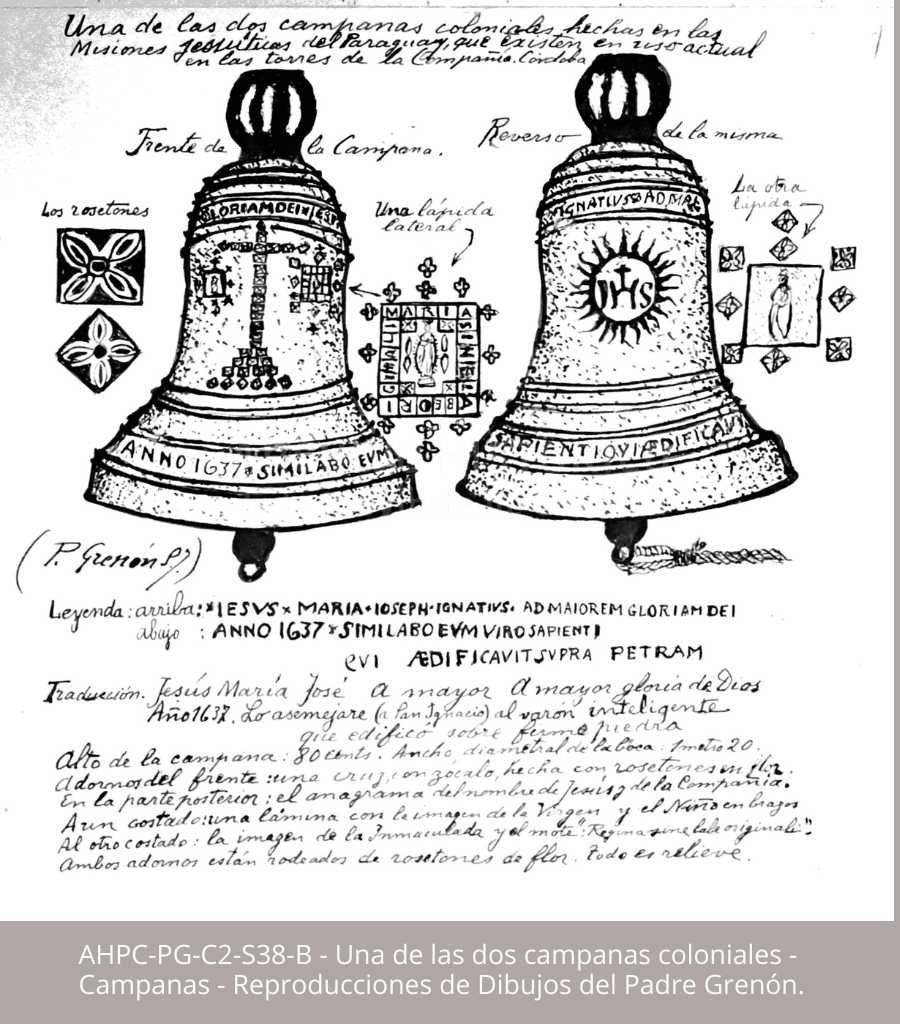 Una de las dos campanas coloniales, hechas en las
Misiones jesuíticas del Paraguay, que existen en uso actual
en las torres de la Compañia. Córdoba
Frente de la Campana.
Reverso de la misma
Los rosetones
Una lápida
lateral
La otra
lapida
GLORIAM DEI * IESV
IGNATIVS AD MA
JHS
MARIA
SINE LA
BE ORI
GINALI
ANNO 1637 * SIMILABO EVM
SAPIENTI QVI ÆDIFICAVI
(P. Grenón SJ)
Leyenda: arriba: *IESVS × MARIA · IOSEPH · IGNATIVS · AD MAIOREM GLORIAM DEI
abajo : ANNO 1637 * SIMILABO EVM VIRO SAPIENTI
QVI ÆDIFICAVIT SVPRA PETRAM
Traducción. Jesús María José A mayor A mayor gloria de Dios
Año 1637. Lo asemejare (a San Ignacio) al varón inteligente
que edificó sobre firme piedra
Alto de la campana: 80 cents. Ancho, diametral de la boca: 1 metro 20.
Adornos del frente: una cruz, con zócalo, hecha con rosetones en flor.
En la parte posterior: el anagrama del nombre de Jesús y de la Compañia.
A un costado: una lámina con la imagen de la Virgen y el Niño en brazos
Al otro costado: la imagen de la Inmaculada y el mote: "Regina sine labe originali".
Ambos adornos están rodeados de rosetones de flor. Todo es relieve.
AHPC-PG-C2-S38-B - Una de las dos campanas coloniales -
Campanas - Reproducciones de Dibujos del Padre Grenón.